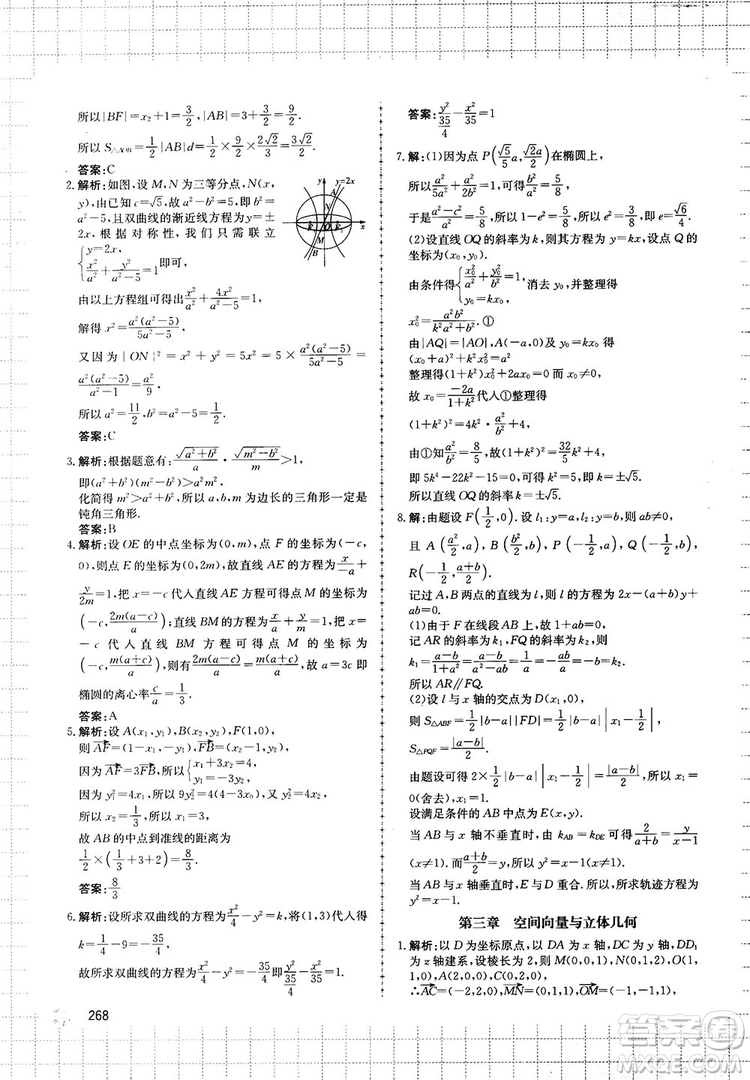 所以|BF|=x₂+1=3/2,|AB|=3+3/2=9/2
所以 S△AOB=1/2|AB|d=1/2×9/2×2√2/3=3√2/2.
答案:C
2.解析:如图,设 M,N 为三等分点,N(x,
y),由已知 c=√5,故 a²-b²=5,b²=
a²-5,且双曲线的渐近线方程为 y=±
2x,根据对称性,我们只需联立
{y=2x
x²/a²+y²/(a²-5)=1即可,
由以上方程组可得出x²/a²+4x²/(a²-5)=1
解得 x²=a²(a²-5)/(5a²-5)
又因为|ON|²=x²+y²=5x²=5×a²(a²-5)/(5a²-5)=
a²(a²-5)/(a²-1)=a²/9.
所以 a²=11/2,b²=1/2.
答案:C
3.解析:根据题意有:√(a²+b²)/a·√(m²-b²)/m>1,
即(a²+b²)(m²-b²)>a²m².
化简得 m²>a²+b²,所以以 a,b,m 为边长的三角形一定是
钝角三角形.
答案:B
4.解析:设 OE 的中点坐标为(0,m),点 F 的坐标为(-c,
0),则点 E 的坐标为(0,2m),故直线 AE 的方程为x/a+
y/2m=1,把 x=-c 代入直线 AE 方程可得 M 的坐标为
(-c,2m(a+c)/a);直线 BM 方程为x/a+y/m=1,把 x
=-c 代入直线 BM 方程可得 M 的坐标为
(-c,m(a+c)/a),则有2m(a-c)/a=m(a+c)/a,故 a=3c 即
椭圆的离心率c/a=1/3.
答案:A
5.解析:设 A(x₁,y₁),B(x₂,y₂),F(1,0),
则AF=(1-x₁,-y₁),FB=(x₂-1,y₂)
因为AF=3FB,所以{x₁=4-3x₂
-y₁=3y₂,
因为 y₁²=4x₁,所以 9y₂²=4(4-3x₂),又 y₂²=4x₂
所以 x₂=1/3,所以 x₁=3,
故 AB 的中点到准线的距离为
1/2×(1/3+3+2)=8/3.
答案:8/3
6.解析:设所求双曲线的方程为x²/4-y²=k,将(1,3)代入得
k=1/4-9=-35/4,
故所求双曲线的方程为x²/4-y²=-35/4即y²/(35/4)-x²/35=1.
268
答案:y²/(35/4)-x²/35=1
7.解:(1)因为点 P(√5/5a,√2/2a)在椭圆上,
所以a²/5a²+a²/2b²=1,可得b²/a²=5/8,
于是(a²-c²)/a²=5/8,所以1-e²=5/8,所以e=√6/4.
(2)设直线 OQ 的斜率为 k,则其方程为 y=kx,设点 Q 的
坐标为(x₀,y₀).
由条件得{x₀²/a²+y₀²/b²=1
y₀=kx₀,消去 y₀ 并整理得
x₀²=a²b²/(k²a²+b²).①
由|AQ|=|AO|,A(-a,0)及 y₀=kx₀得
(x₀+a)²+k²x₀²=a²
整理得(1+k²)x₀²+2ax₀=0,而 x₀≠0,
故 x₀=-2a/(1+k²)代入①整理得
(1+k²)²=4k²·a²/b²+4.
由①知a²/b²=8/5,故(1+k²)²=32/5k²+4
即 5k⁴-22k²-15=0,可得 k²=5
所以直线 OQ 的斜率 k=±√5.
8.解:由题设 F(1/2,0).设 l₁:y=a,l₂:y=b,则 ab≠0,
且 A(a²/2,a),B(b²/2,b),P(-1/2,a),Q(-1/2,b),
R(-1/2,(a+b)/2).
记过 A,B 两点的直线为 l,则 l 的方程为 2x-(a+b)y+
ab=0.
(1)由于 F 在线段 AB 上,故 1+ab=0.
记 AR 的斜率为 k₁,FQ 的斜率为 k₂,则
k₁=(a-b)/(1+a²)=(a-b)/(a²-ab)=1/a=-ab/a=-b=k₂.
所以 AR∥FQ.
(2)设 l 与 x 轴的交点为 D(x₁,0),
则 S△ABF=1/2|b-a||FD|=1/2|b-a||x₁-1/2|,
S△PQF=|a-b|/2.
由题设可得 2×1/2|b-a||x₁-1/2|=|a-b|/2,所以 x₁=
0(舍去),x₁=1.
设满足条件的 AB 中点为 E(x,y).
当 AB 与 x 轴不垂直时,由 kAB=kDE可得2/(a+b)=y/(x-1)
(x≠1).而(a+b)/2=y,所以 y²=x-1(x≠1).
当 AB 与 x 轴垂直时,E 与 D 重合,此时 E 点坐标为(1,0)
所以,所求轨迹方程为 y²=x-1.
第三章 空间向量与立体几何
1.解析:以 D 为坐标原点,以 DA 为 x 轴,DC 为 y 轴,DD₁
为 z 轴建系,设棱长为 2,则 M(0,0,1),N(0,1,2),O(1,
1,0),A(2,0,0),C(0,2,0)
∴AC=(-2,2,0),MN=(0,1,1),OM=(-1,-1,1),
答案圈
MXQE.COM